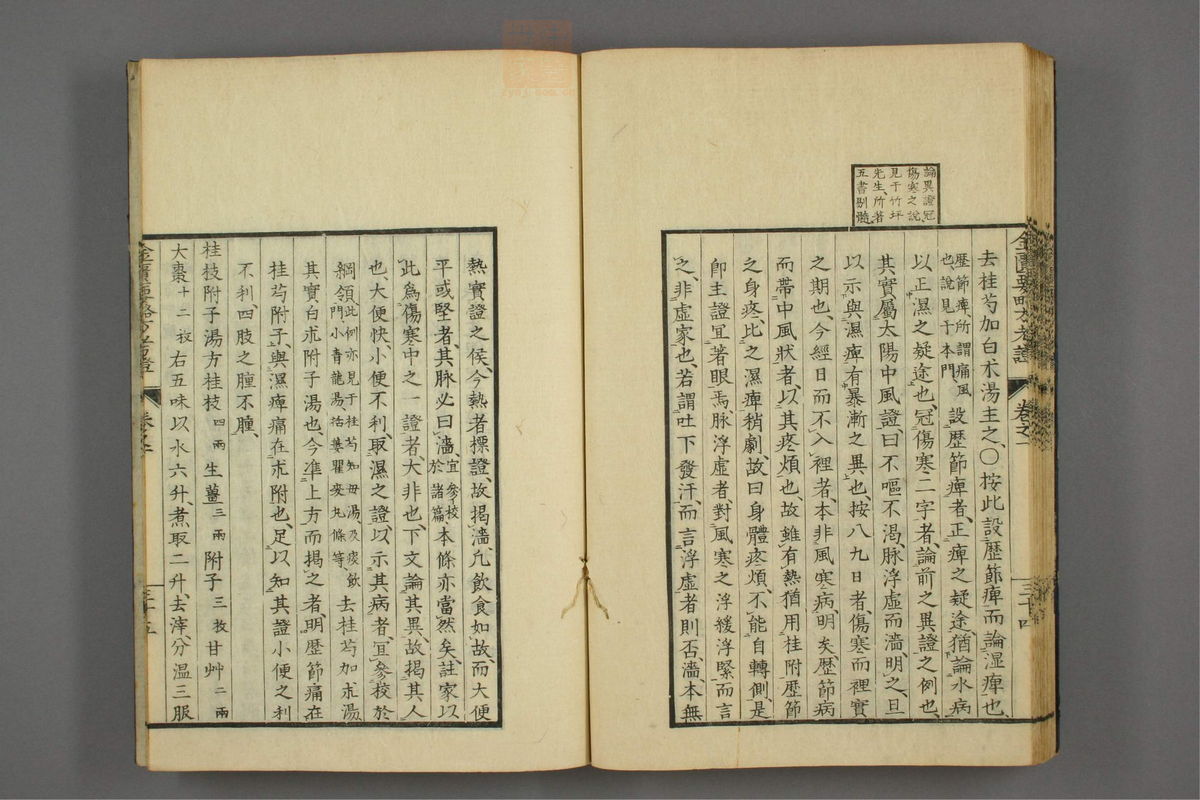 論異證冠
傷寒之說
見于竹坪
先生所著
五書剔髓
去桂芍加白朮湯主之、〇按此設歷節痺而論湿痺也、
歷節痺、所謂痛風
也說見于本門
設歷節痺者、正痺之疑途、猶論水病
以正濕之疑途也、冠傷寒二字者、論前之異證之例也、
其實屬太陽中風證、曰不嘔不渴、脉浮虛而濇明之、且
以示與濕痺有暴漸之異也、按八九日者、傷寒而裡實
之期也、今經日而不入裡者、本非風寒病、明矣、歷節病
而帶中風狀者、以其疼煩也、故雖有熱猶用桂附、歷節
之身疼、比之濕痺稍劇、故曰身體疼煩、不能自轉側、是
卽主證宜著眼焉、脉浮虛者、對風寒之浮緩浮緊而言
之、非虛家也、若謂吐下發汗、而言浮虛者則否、濇本無
三十四
熱實證之候、今熱者標證、故揭濇、凡飲食如故、而大便
平或堅者、其脉必曰濇、
宜參校
於諸篇
本條亦當然矣、註家以
此為傷寒中之一證者、大非也、下文論其異、故揭其人
也、大便快、小便不利、取濕之證、以示其病者、宜參校於
綱領、
此例亦見于桂芍知毋湯、及痰飲
門小青龍湯、括蔞瞿麥丸條等、
去桂芍加朮湯
其實、白朮附子湯也、今準上方而揭之者、明歷節痛在
桂芍附子、與濕痺痛在朮附也、足以知其證小便之利
不利、四肢之腫不腫、
桂枝附子湯方桂枝四兩生薑三兩附子三枚甘艸二兩
大棗十二枚右五味以水六升煮取二升、去滓、分温三服
三十五